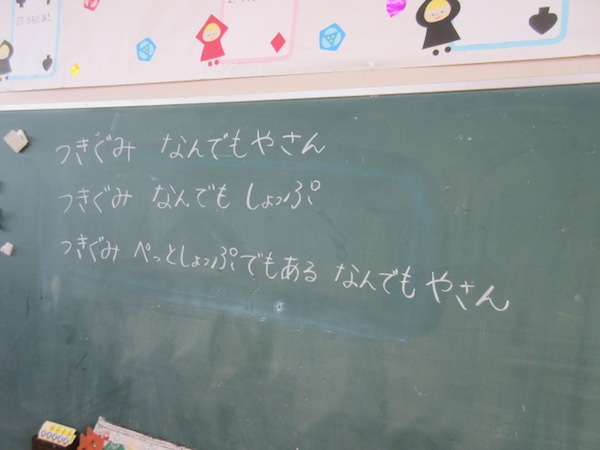 つきぐみ なんでもやさん
つきぐみ なんでも しょっぷ
つきぐみ ぺっとしょっぷでもある なんでも やさん